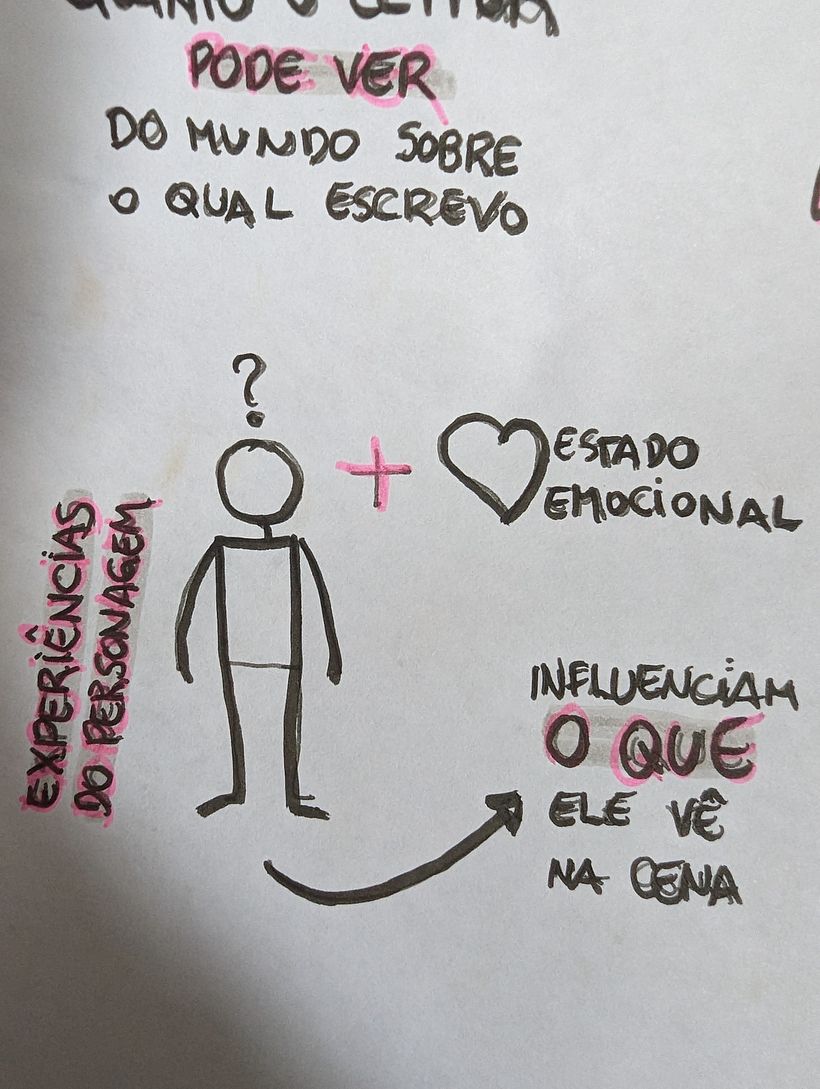 QUANTO O LEITOR
PODE VER
DO MUNDO SOBRE
O QUAL ESCREVO
?
+
ESTADO
EMOCIONAL
EXPERIÊNCIAS
DO PERSONAGEM
INFLUENCIAM
O QUE
ELE VÊ
NA CENA